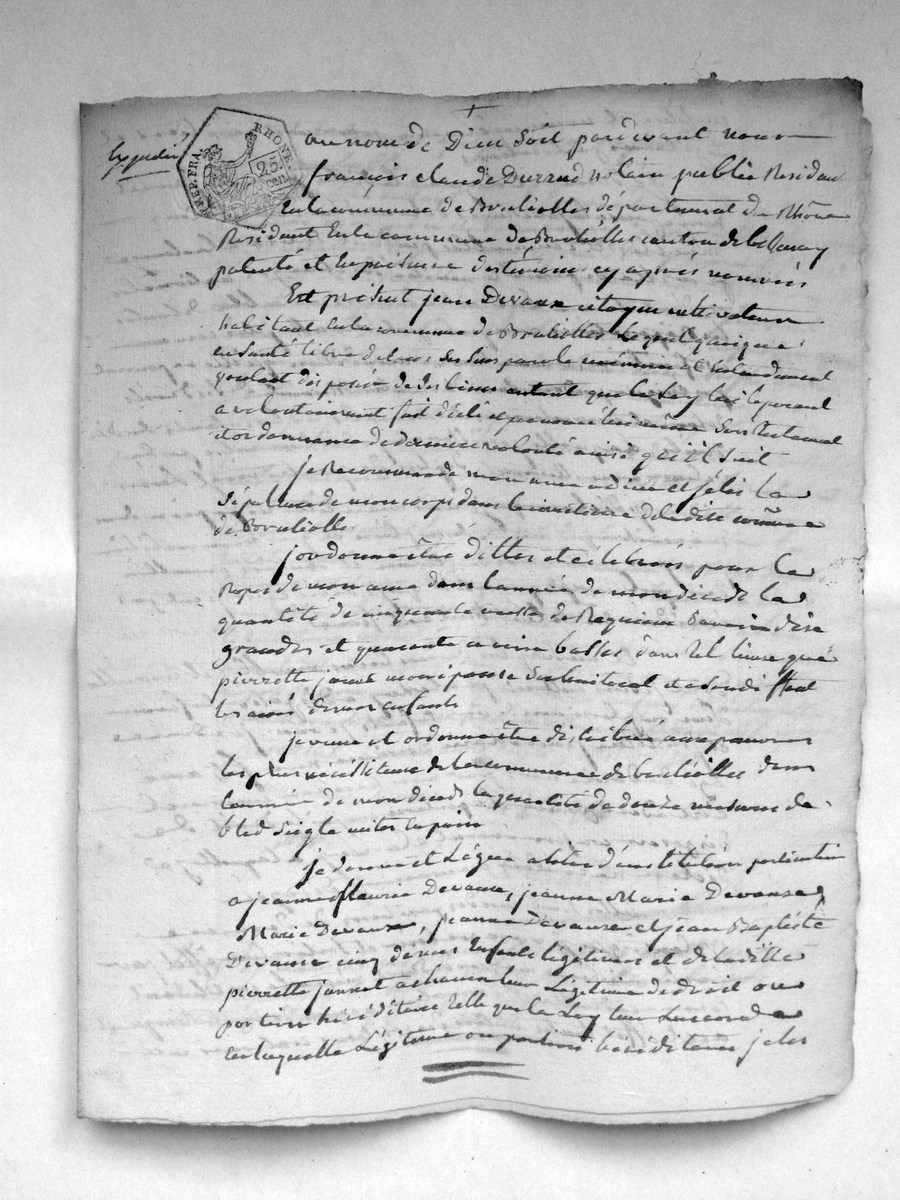 Expedié
REP. FRA. RHONE 25 cen
au nom de Dieu soit pardevant nous
françois claude Durand notaire public Residant
En la commune de Brulliolles département du Rhône
Residant En la commune de Brulliolles canton de
patenté et En présence des témoins cy après nommés
Est présent jean Devaux citoyen cultivateur
habitant en la commune de Brulliolles Lequel quoique
en santé libre de tous ses sens par la mémoire et Entendement
voulant disposer de ses biens autant que la Loy lui le permet
a volontairement fait dicté et prononcé lui même Son testament
et ordonnance de dernière volonté ainsi qu'il suit
je Recommande mon ame a dieu et j'élis la
sépulture de mon corps dans le cimetiere de ladite comune
de Brulliolles
j'ordonne être dittes et célébrées pour le
Repos de mon ame dans l'année de mon décès la
quantité de cinquante messes de Requiem Savoir dix
grandes et quarante basses dans tel lieux que
pierrette jannet mon épouse
les ainés de mes enfants
je veux et ordonne être distribué aux pauvres
les plus nécessiteux de la commune de brulliolles dans
l'année de mon décès la quantité de douze mesures de
bled seigle mites en pain
je donne et Lègue a titre d'institution particulière
a jeanne fleurie Devaux, jeanne Marie Devaux,
Marie Devaux, jeanne Devaux et jean Baptiste
Devaux cinq de mes Enfants légitimes et de ladite
pierrette jannet a chacun leur Légitime de droit ou
portion héréditaire telle que la Loy leur accorde
en laquelle Légitime ou portion héréditaire je les